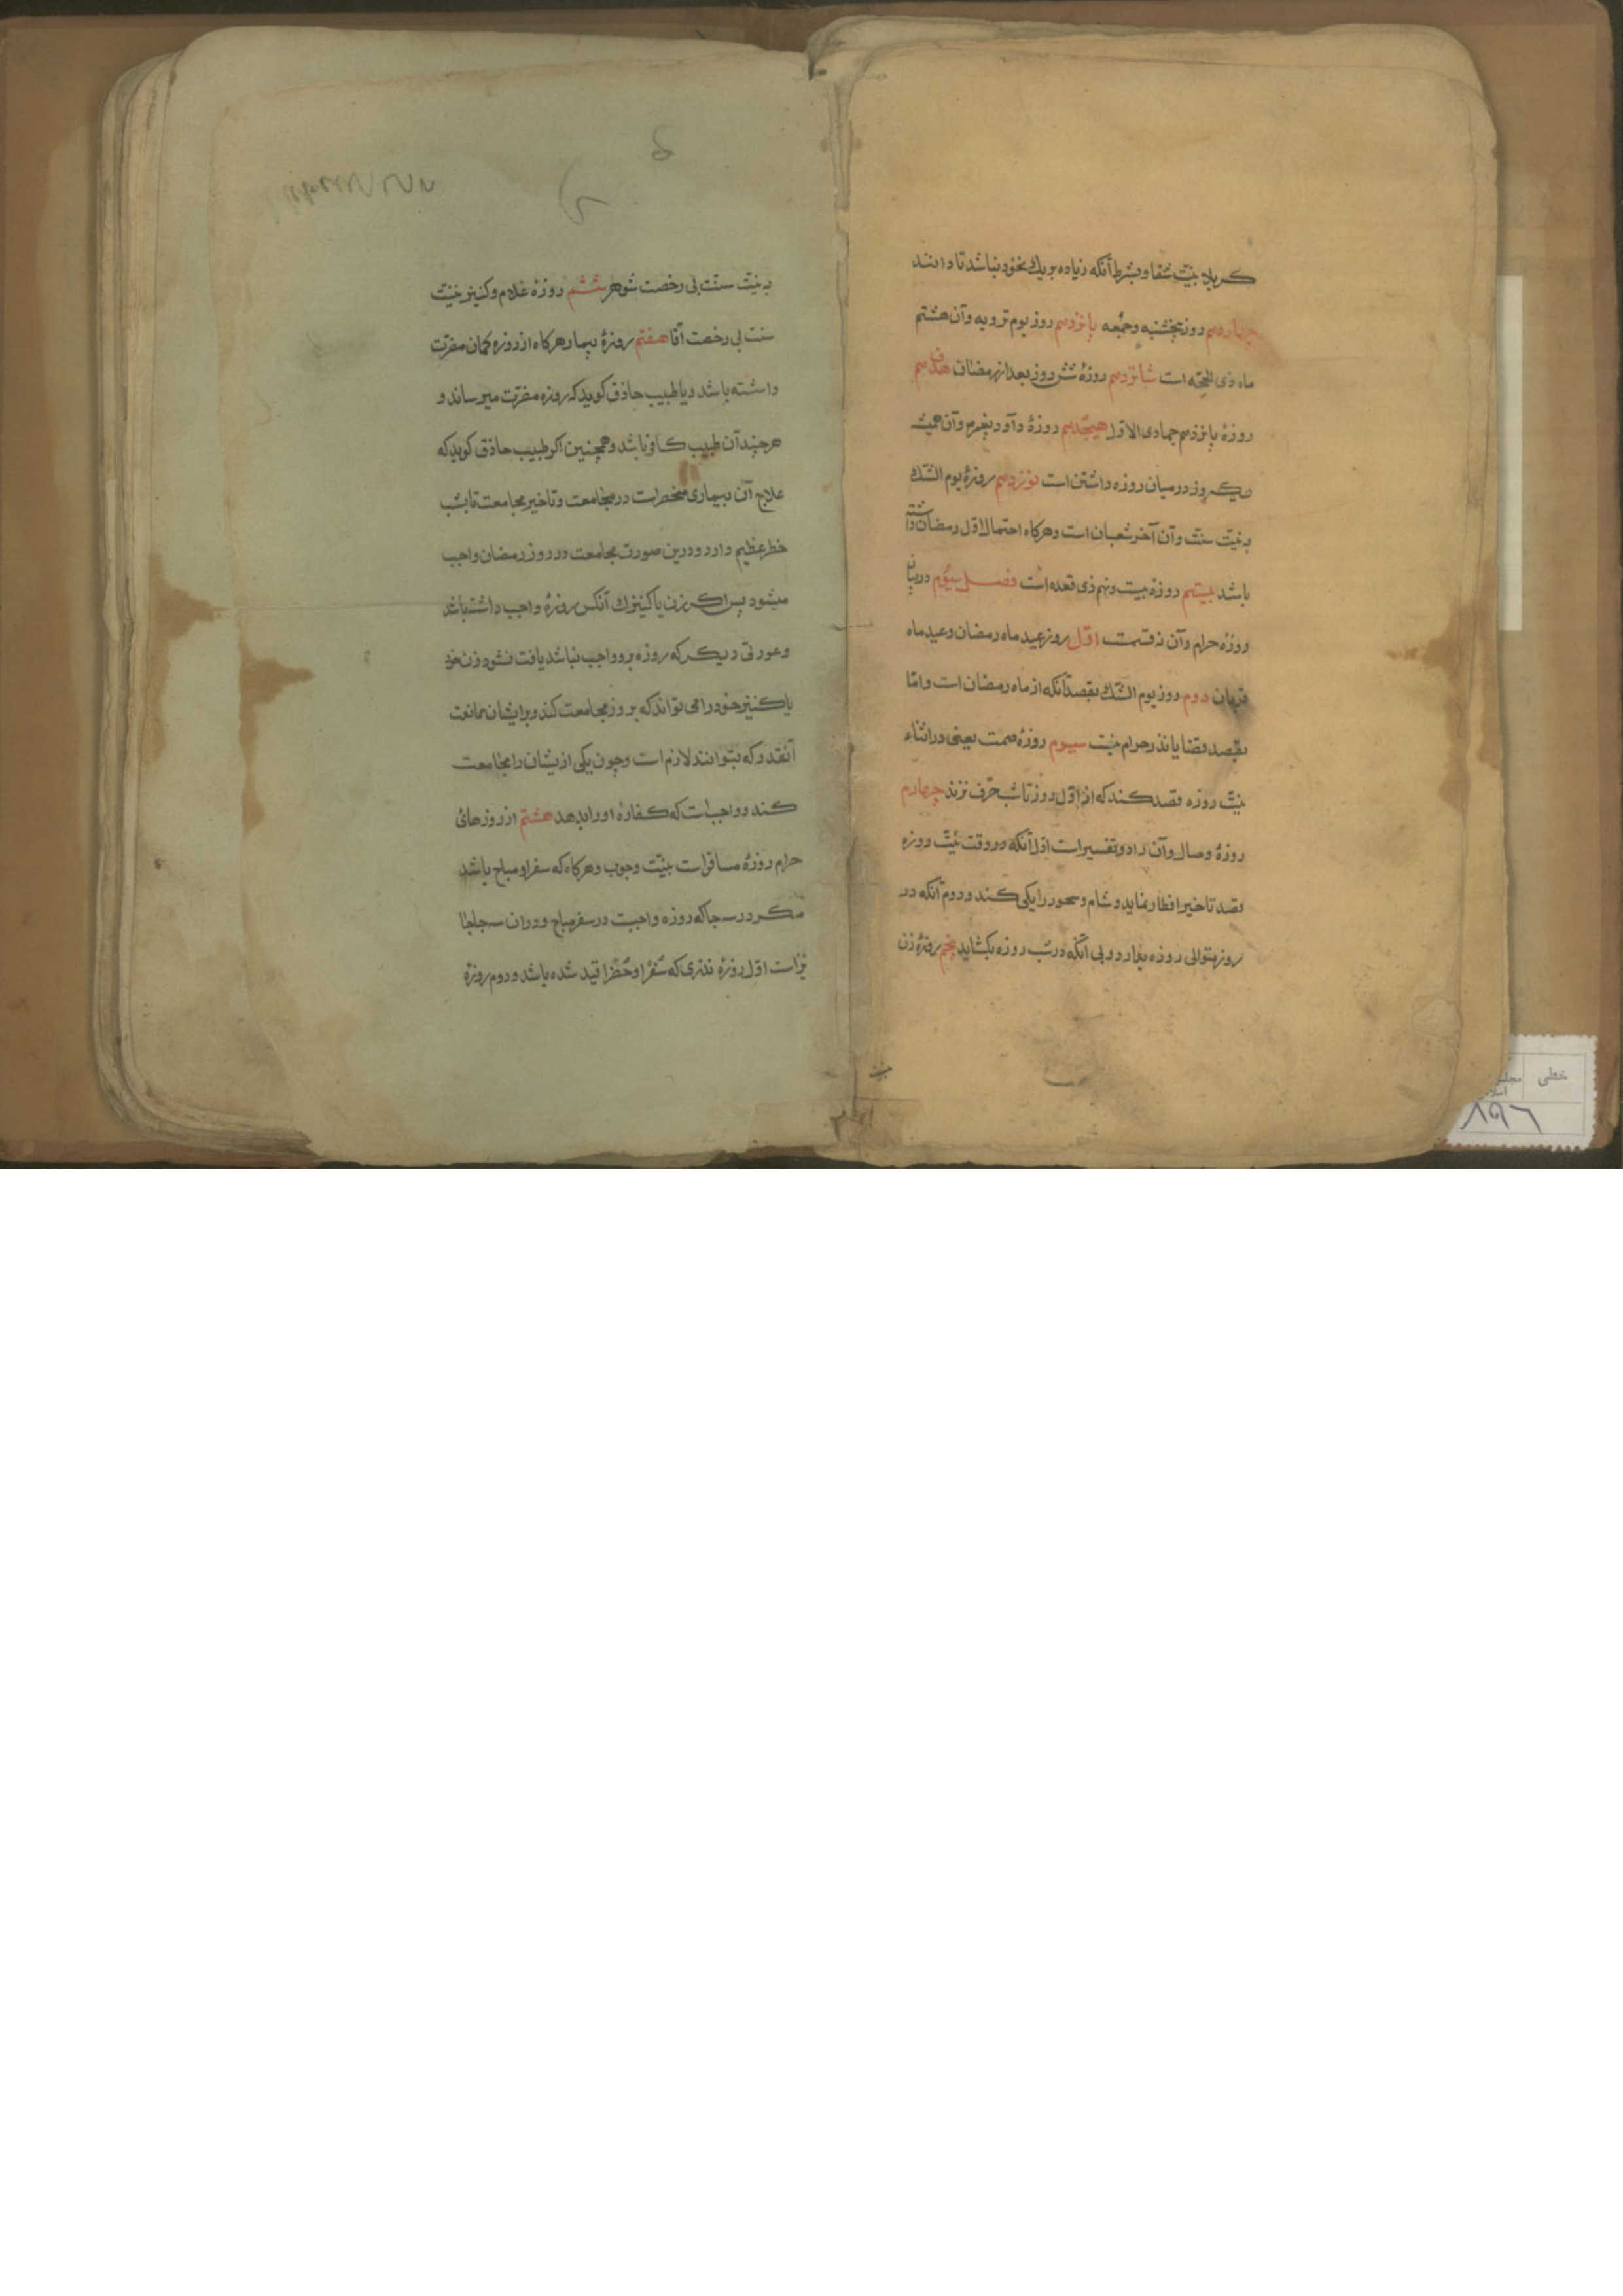 کربلا بنیّت شفا و بشرط آنکه زیاده بر یک نخود نباشد تا دانند
چهاردهم روز پنجشنبه و جمعه پانزدهم روز یوم ترویه و آن هشتم
ماه ذی الحجّه است شانزدهم روزهٔ شش روز بعد از رمضان هفدهم
روزهٔ پانزدهم جمادی الاوّل هیجدهم روزهٔ داود پیغمبر و آن همیشه
یکروز در میان روزه داشتن است نوزدهم روزهٔ یوم الشّک
بنیّت سنّت و آن آخر شعبان است و هرکاه احتمال اوّل رمضان داشته
باشد بیستم روزهٔ بیست و نهم ذی قعده است فصل سیّوم در بیان
روزهٔ حرام و آن نه قسمت اوّل روز عید ماه رمضان و عید ماه
قربان دوم روز یوم الشّک بقصد آنکه از ماه رمضان است و امّا
بقصد قضا یا نذر حرام نیست سیوم روزهٔ صمت یعنی در اثناء
نیّت روزه قصد کند که از اوّل روز تا شب حرف نزند چهارم
روزهٔ وصال و آن را دو تفسیر است اوّل آنکه در وقت نیّت روزه
قصد تاخیر افطار نماید و شام و سحور را یکی کند و دوم آنکه در
روز متوالی روزه بدارد و بی آنکه در شب روزه بکشاید پنجم روزهٔ زن
بنیّت سنّت بی رخصت شوهر ششم روزهٔ غلام و کنیز بنیّت
سنت بی رخصت آقا هفتم روزهٔ بیمار هرکاه از روزه کمان مضرّت
داشته باشد و یا طبیب حاذق کوید که روزه مضرّت میرساند و
هرچند آن طبیب کافر باشد و همچنین اکر طبیب حاذق کوید که
علاج آن بیماری منحصر است در مجامعت و تاخیر مجامعت تا بشب
خطر عظیم دارد و درین صورت مجامعت در روز رمضان واجب
میشود پس اکر زن یا کنیزک آنکس روزهٔ واجب داشته باشد
و عورتی دیکر که روزه برو واجب نباشد یافت نشود زن خود
یا کنیز خود را می تواند که بروز مجامعت کند و بر ایشان ممانعت
آنقدر که بتوانند لازم است و چون یکی ازیشان را مجامعت
کند واجب است که کفارهٔ او را بدهد هشتم از روزهای
حرام روزهٔ مسافر است بنیّت وجوب و هرکاه که سفر او مباح باشد
مکر در سه جا که روزه واجبست در سفر مباح و در آن سه جا
نیز است اوّل روزهٔ نذری که سفراً و حضراً قید شده باشد و دوم روزهٔ
خطی
۸۹۶